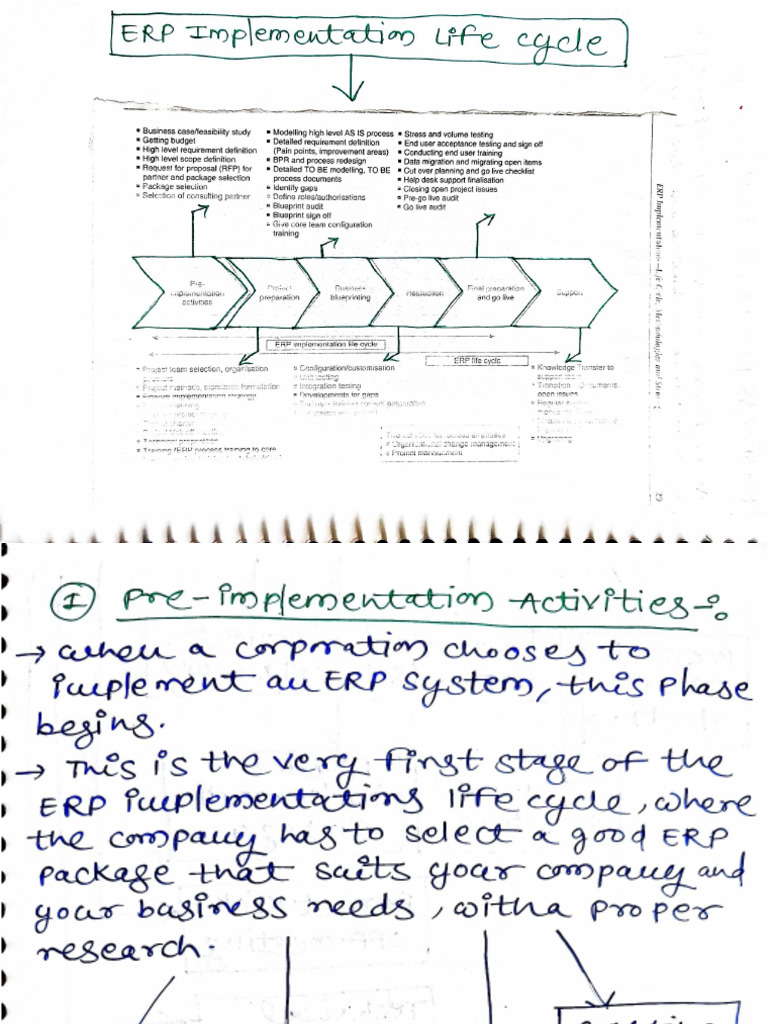 ERP Implementation Life cycle
Business case/feasibility study
Getting budget
High level requirement definition
High level scope definition
Request for proposal (RFP) for
partner and package selection
Package selection
Selection of consulting partner
Modelling high level AS IS process
Detailed requirement definition
(Pain points, improvement areas)
BPR and process redesign
Detailed TO BE modelling, TO BE
process documents
Identify gaps
Define roles/authorisations
Blueprint audit
Blueprint sign off
Give core team configuration
training
Stress and volume testing
End user acceptance testing and sign off
Conducting end user training
Data migration and migrating open items
Cut over planning and go live checklist
Help desk support finalisation
Closing open project issues
Pre-go live audit
Go live audit
ERP Implementation—Life Cycle, Methodologies and
Pre-
implementation
activities
Project
preparation
Business
blueprinting
Realisation
Final preparation
and go live
Support
ERP implementation life cycle
ERP life cycle
Project team selection, organisation
Project methods, standards formulation
Training (ERP process training to core
Configuration/customisation
Unit testing
Integration testing
Developments for gaps
Organisational change management
Project management
Knowledge Transfer to
support
open issues
Upgrading
I Pre-implementation Activities-:
→ when a corporation chooses to
implement an ERP system, this Phase
begins.
→ This is the very first stage of the
ERP implementations life cycle, where
the company has to select a good ERP
package that suits your company and
your business needs, with a proper
research.